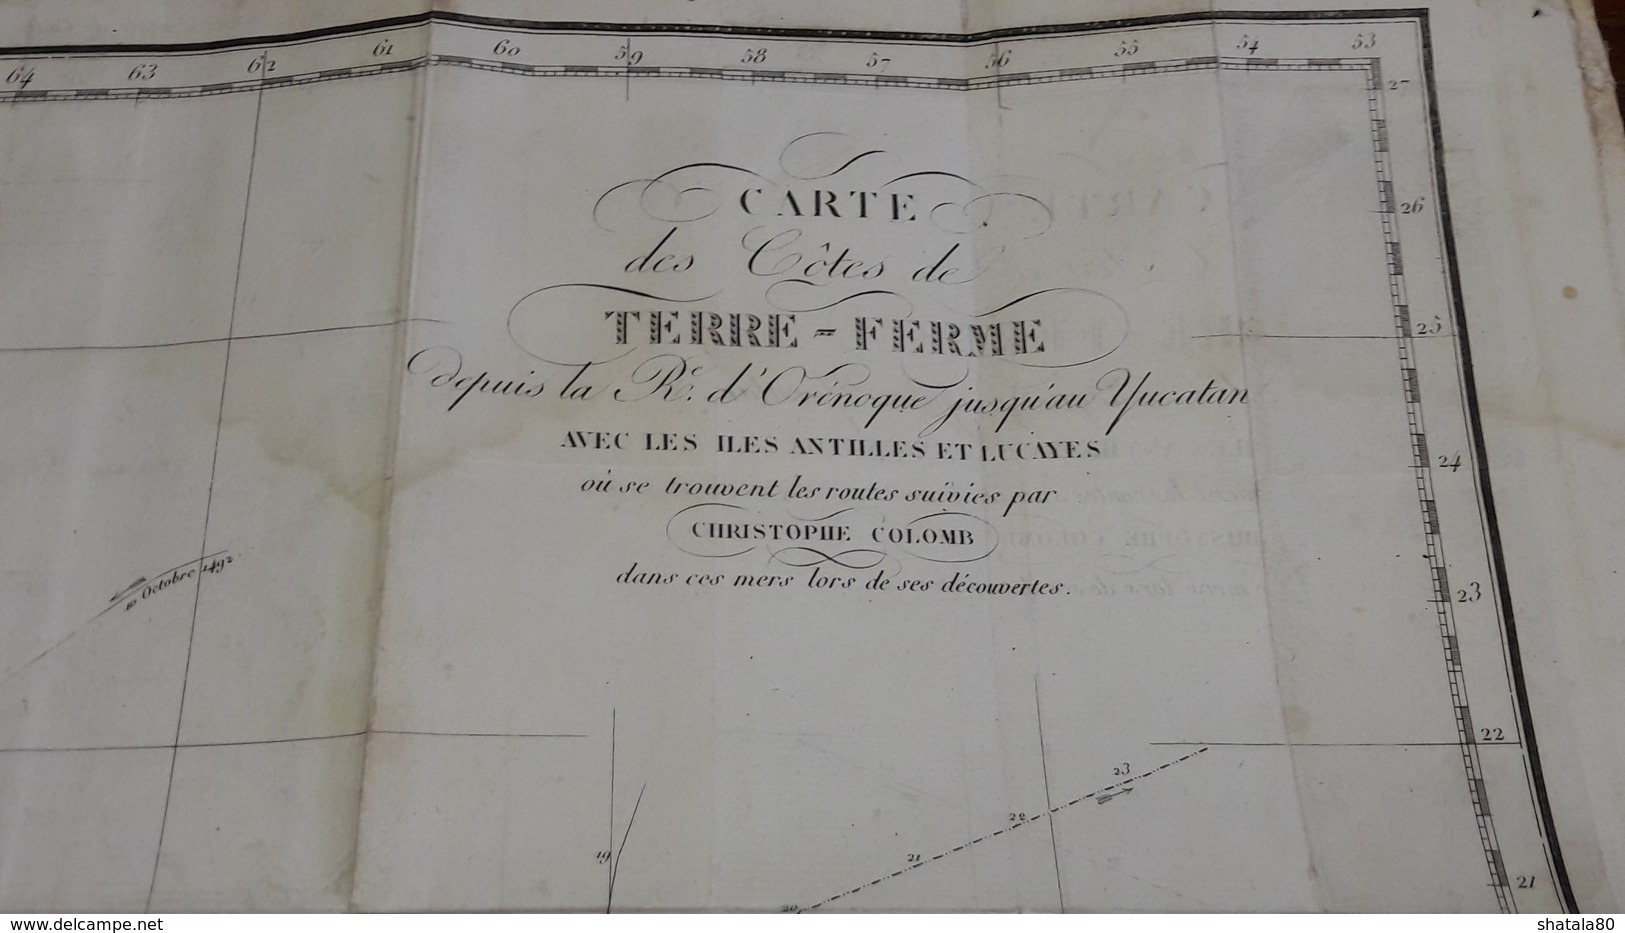 64 63 62 61 60 59 58 57 56 55 54 53
27
CARTE
26
des Côtes de
TERRE=FERME
25
depuis la Re. d'Orénoque jusqu'au Yucatan
AVEC LES ILES ANTILLES ET LUCAYES
24
où se trouvent les routes suivies par
CHRISTOPHE COLOMB
dans ces mers lors de ses découvertes.
23
10 Octobre 1492
22
23
22
21
20
19
21
delcampe.net
shatala80